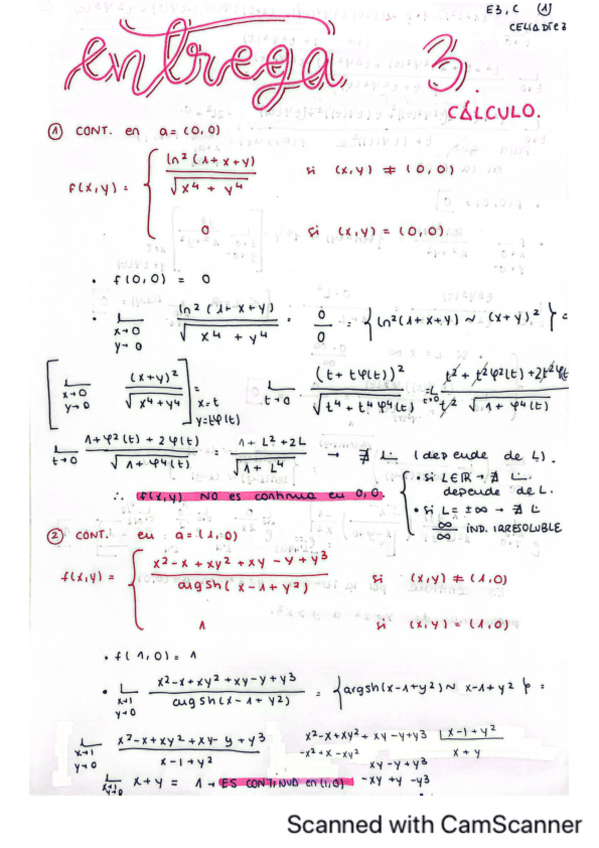 E3, C ①
CELIA DÍEZ
entrega 3.
CÁLCULO.
① CONT. en a = (0,0)
f(x,y) = { ln² (1+x+y) / √(x⁴ + y⁴) si (x,y) ≠ (0,0)
0 si (x,y) = (0,0)
• f(0,0) = 0
• L x→0 y→0 ln² (1+x+y) / √(x⁴ + y⁴) . 0/0 = { ln²(1+x+y) ~ (x+y)² } =
[ L x→0 y→0 (x+y)² / √(x⁴+y⁴) ] = x=t y=tφ(t) L t→0 (t + tφ(t))² / √(t⁴ + t⁴φ⁴(t)) = L t→0 t² + t²φ²(t) + 2t²φ(t / t² √(1 + φ⁴(t))
L t→0 1+φ²(t) + 2φ(t) / √(1+φ⁴(t)) = 1+L²+2L / √(1+L⁴) → ∄ L (depende de L).
∴ f(x,y) NO es continua en 0,0.
{ • si L∈ℝ → ∄ L depende de L.
• si L = ±∞ → ∄ L
∞/∞ IND. IRRESOLUBLE
② CONT. en a = (1,0)
f(x,y) = { x²-x+xy²+xy-y+y³ / argsh(x-1+y²) si (x,y) ≠ (1,0)
1 si (x,y) = (1,0)
• f(1,0) = 1
• L x→1 y→0 x²-x+xy²+xy-y+y³ / argsh(x-1+y²) = { argsh(x-1+y²) ~ x-1+y² } =
L x→1 y→0 x²-x+xy²+xy-y+y³ / x-1+y²
x²-x+xy²+xy-y+y³ | x-1+y²
-x²+x-xy² x+y
xy-y+y³
-xy+y-y³
L x→1 y→0 x+y = 1 → ES CONTINUA en (1,0)
Scanned with CamScanner